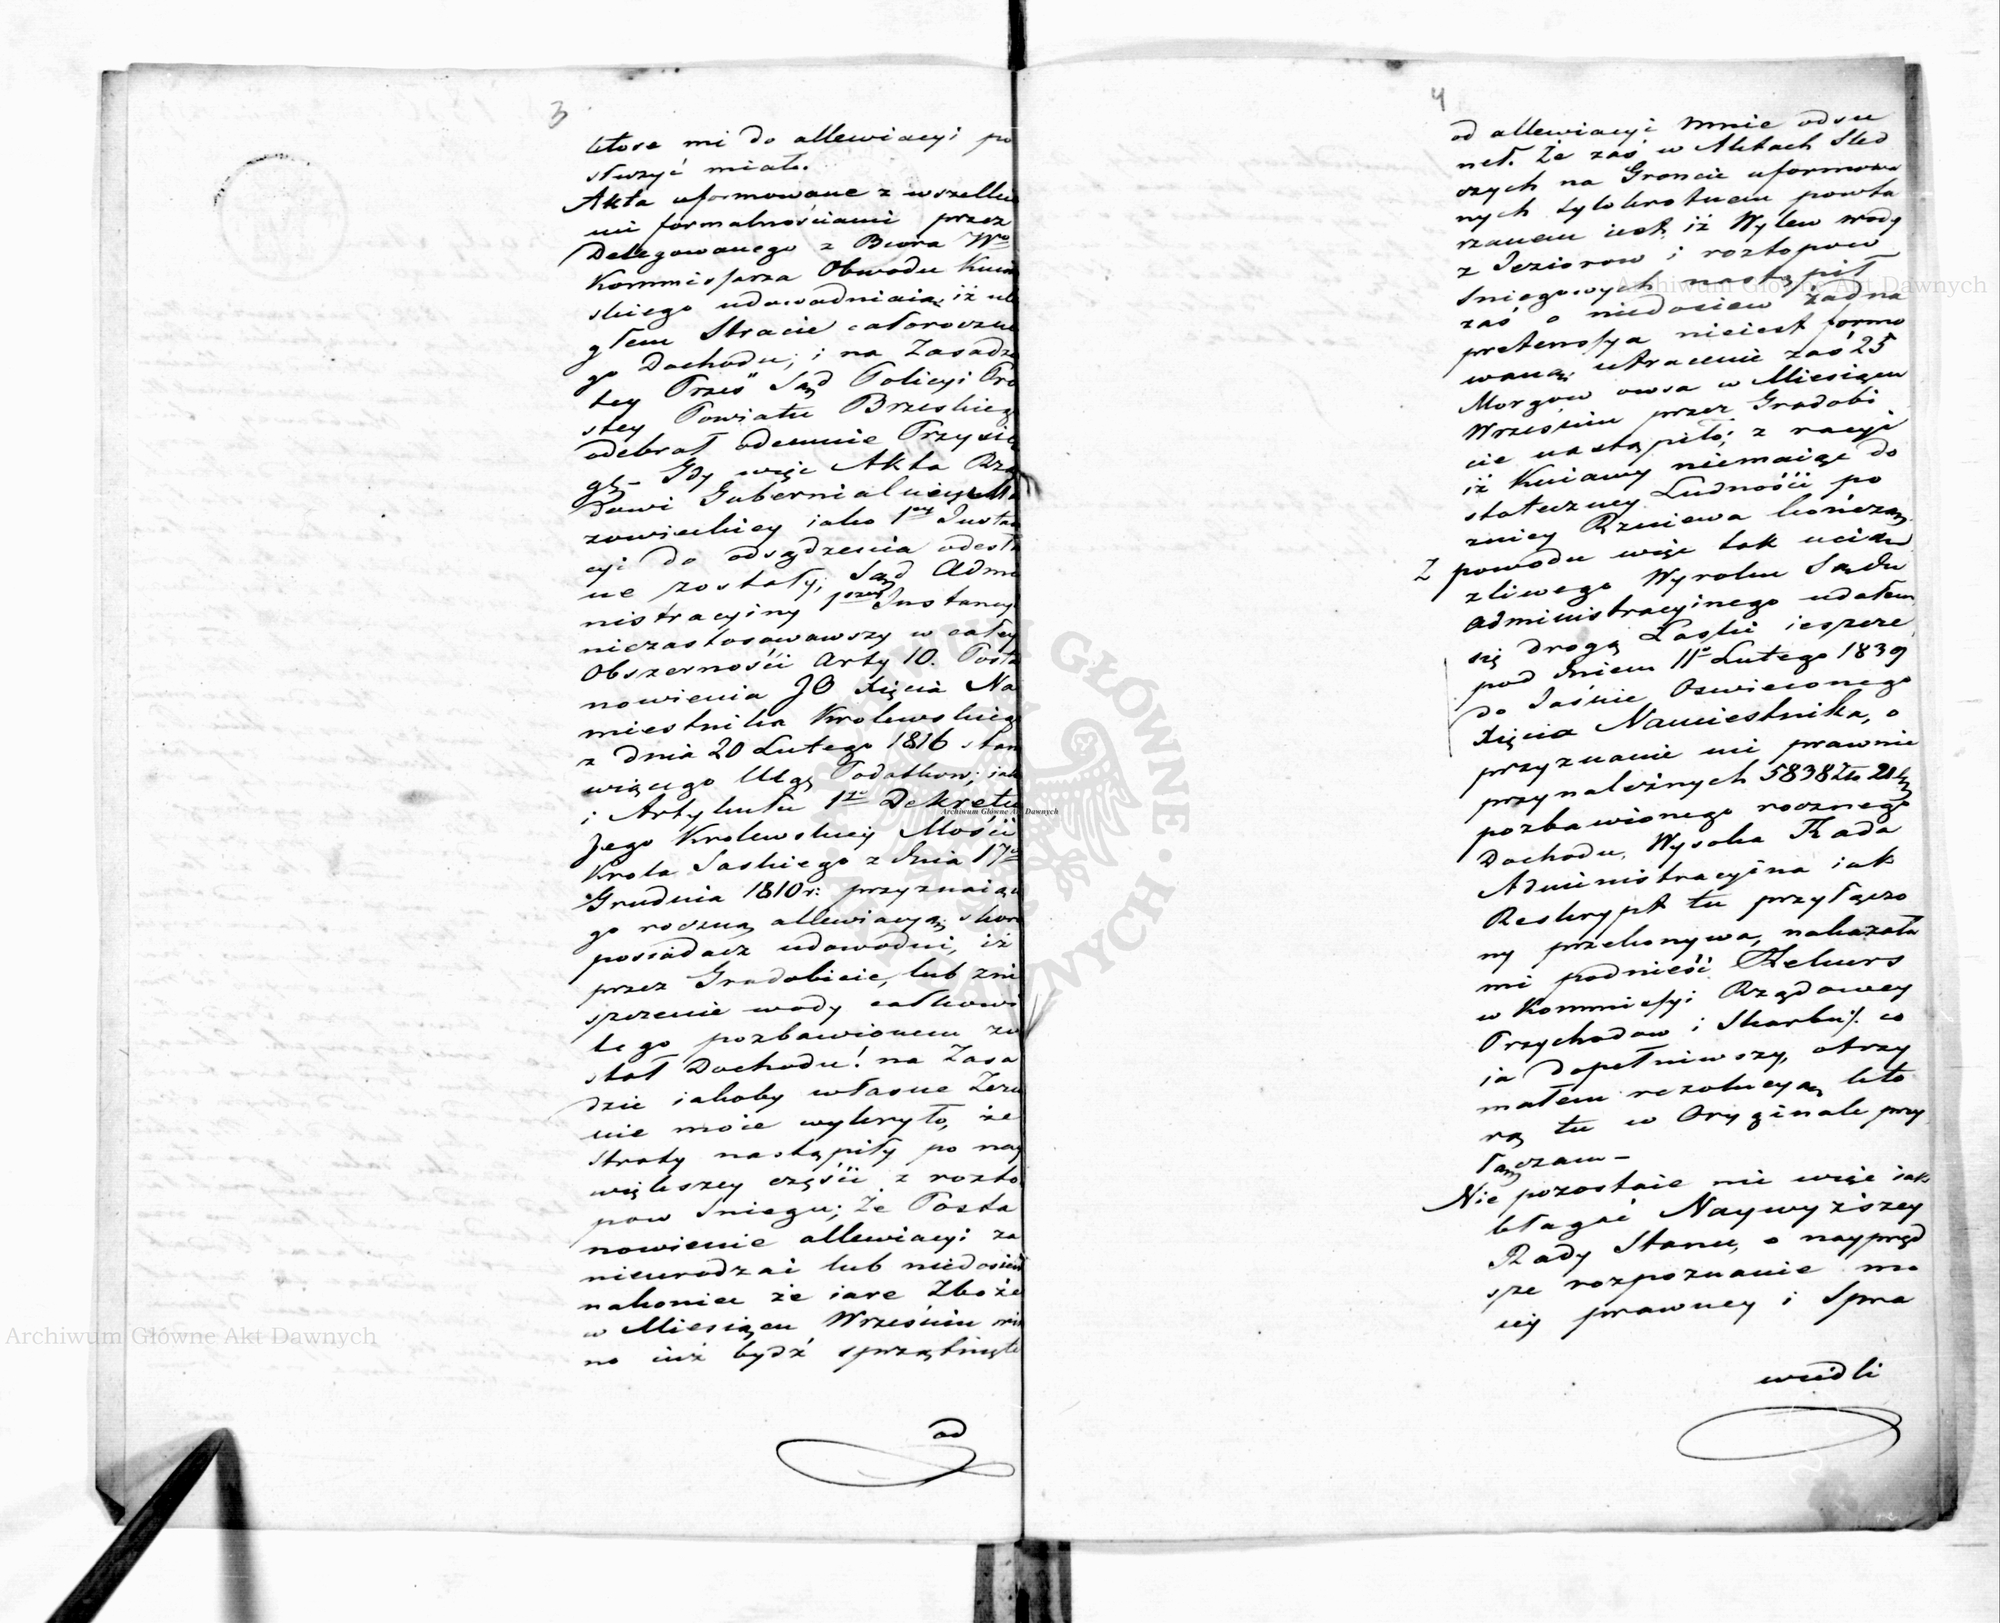 3
które mi do allewiacyi po
służyć miało.
Akta uformowane z wszelkie
mi formalnościami przez
Delegowanego z Biora Wo
Kommissarza Obwodu Kuiaw
skiego udowadniaią, iż ule
głem Stracie całoroczne
go Dochodu; i na Zasadzie
tey Prześ Sąd Policyi Pro
stey Powiatu Brzeskiego
odebrał odemnie Przysię
gę. Gdy więc Akta Rzą
dowi Gubernialnemu Ma
zowieckiey iako 1ey Instan
cyi do osądzenia odesła
ne zostały; Sąd Admi
nistracyiny 1szey Instancyi
niezastosowawszy w całey
Obszerności Arty 10. Posta
nowienia JO Xięcia Na
miestnika Krolewskiego
z dnia 20 Lutego 1816 stano
wiącego Ulgę Podatkow; iako
i Artykułu 1go Dekretu
Jego Krolewskiey Mości
Krola Saskiego z Dnia 17go
Grudnia 1810 r: przyznaiące
go roczną allewiacyą; skoro
posiadacz udowodni, iż
przez Gradobicie, lub zni
szczenie wody całkowi
tego pozbawionem zo
stał Dochodu! na Zasa
dzie iakoby własne Zezna
nie moie wykryło, że
straty nastąpiły po nay
większey części z rozto
pow Sniegu; Że Posta
nowienie allewiacyi za
nieurodzai lub niedosiew
nakoniec że iare Zboże
w Miesiącu Wrześniu win
no iuż bydź sprzątnięte
od
4
od allewiacyi mnie odsu
neł. Że zaś w Aktach Sled
czych na Groncie uformowa
nych tylokrotnem powta
rzanem iest, iż Wylew wody
z Jeziorow i roztopow
Sniegowych nastąpił
zaś o niedosiew żadna
pretensya nieiest formo
waną; utracenie zaś 25
Morgow owsa w Miesiącu
Wrześniu przez Gradobi
cie nastąpiło; z racyi
iż Kuiawy niemaiąc do
stateczney Ludności po
zniey Rzniewa kończą.
Z powodu więc tak uciąż
zliwego Wyroku Sądu
Administracyinego udałem
się drogą Łaski ieszcze
pod Dniem 11o Lutego 1839
do Jaśnie Oswieconego
Xięcia Namiestnika, o
przyznanie mi prawnie
przynależnych 5838 Zło 21 g
pozbawionego rocznego
Dochodu, Wysoka Rada
Administracyina iak
Reskrypt tu przyłączo
ny przekonywa, nakazała
mi podnieść Rekurs
w Kommissyi Rządowey
Przychodow i Skarbu; co
ia dopełniwszy, otrzy
małem rezolucyą, kto
rą tu w Oryginale przy
łączam –
Nie pozostaie mi więc iak
błagać Naywyższey
Rady Stanu, o naypręd
sze rozpoznanie mo
iey prawney i Spra
wiedli
Archiwum Główne Akt Dawnych